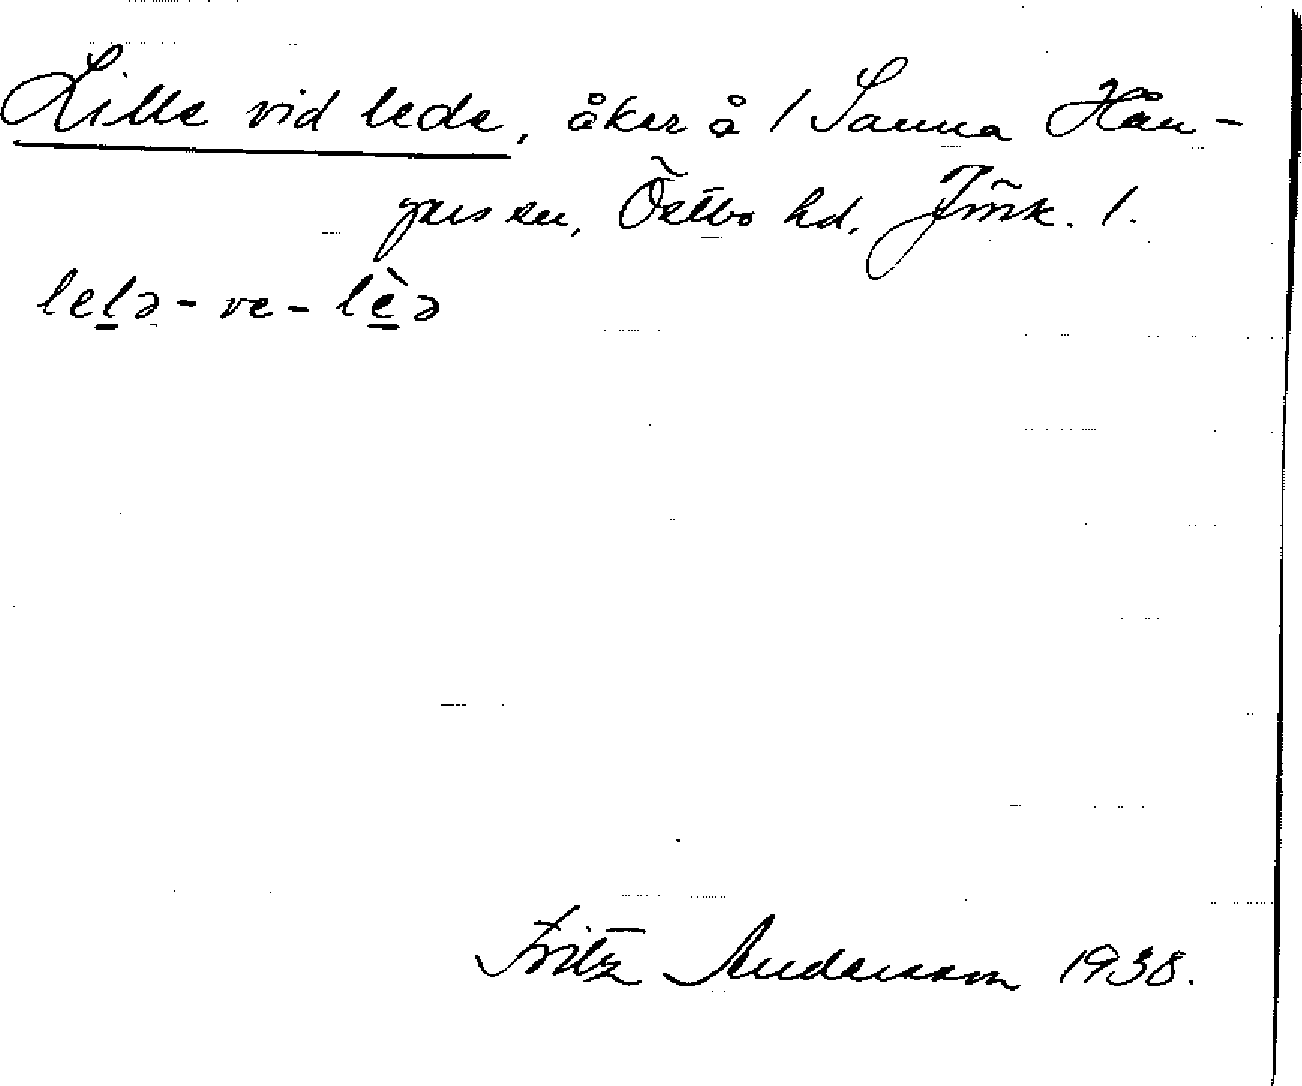 Lille vid lede, åker å 1 Sanna Hån-
ger sn, Östbo hd. Jmk. l.
lelə - ve - lèə
Fritz Andersson 1938.